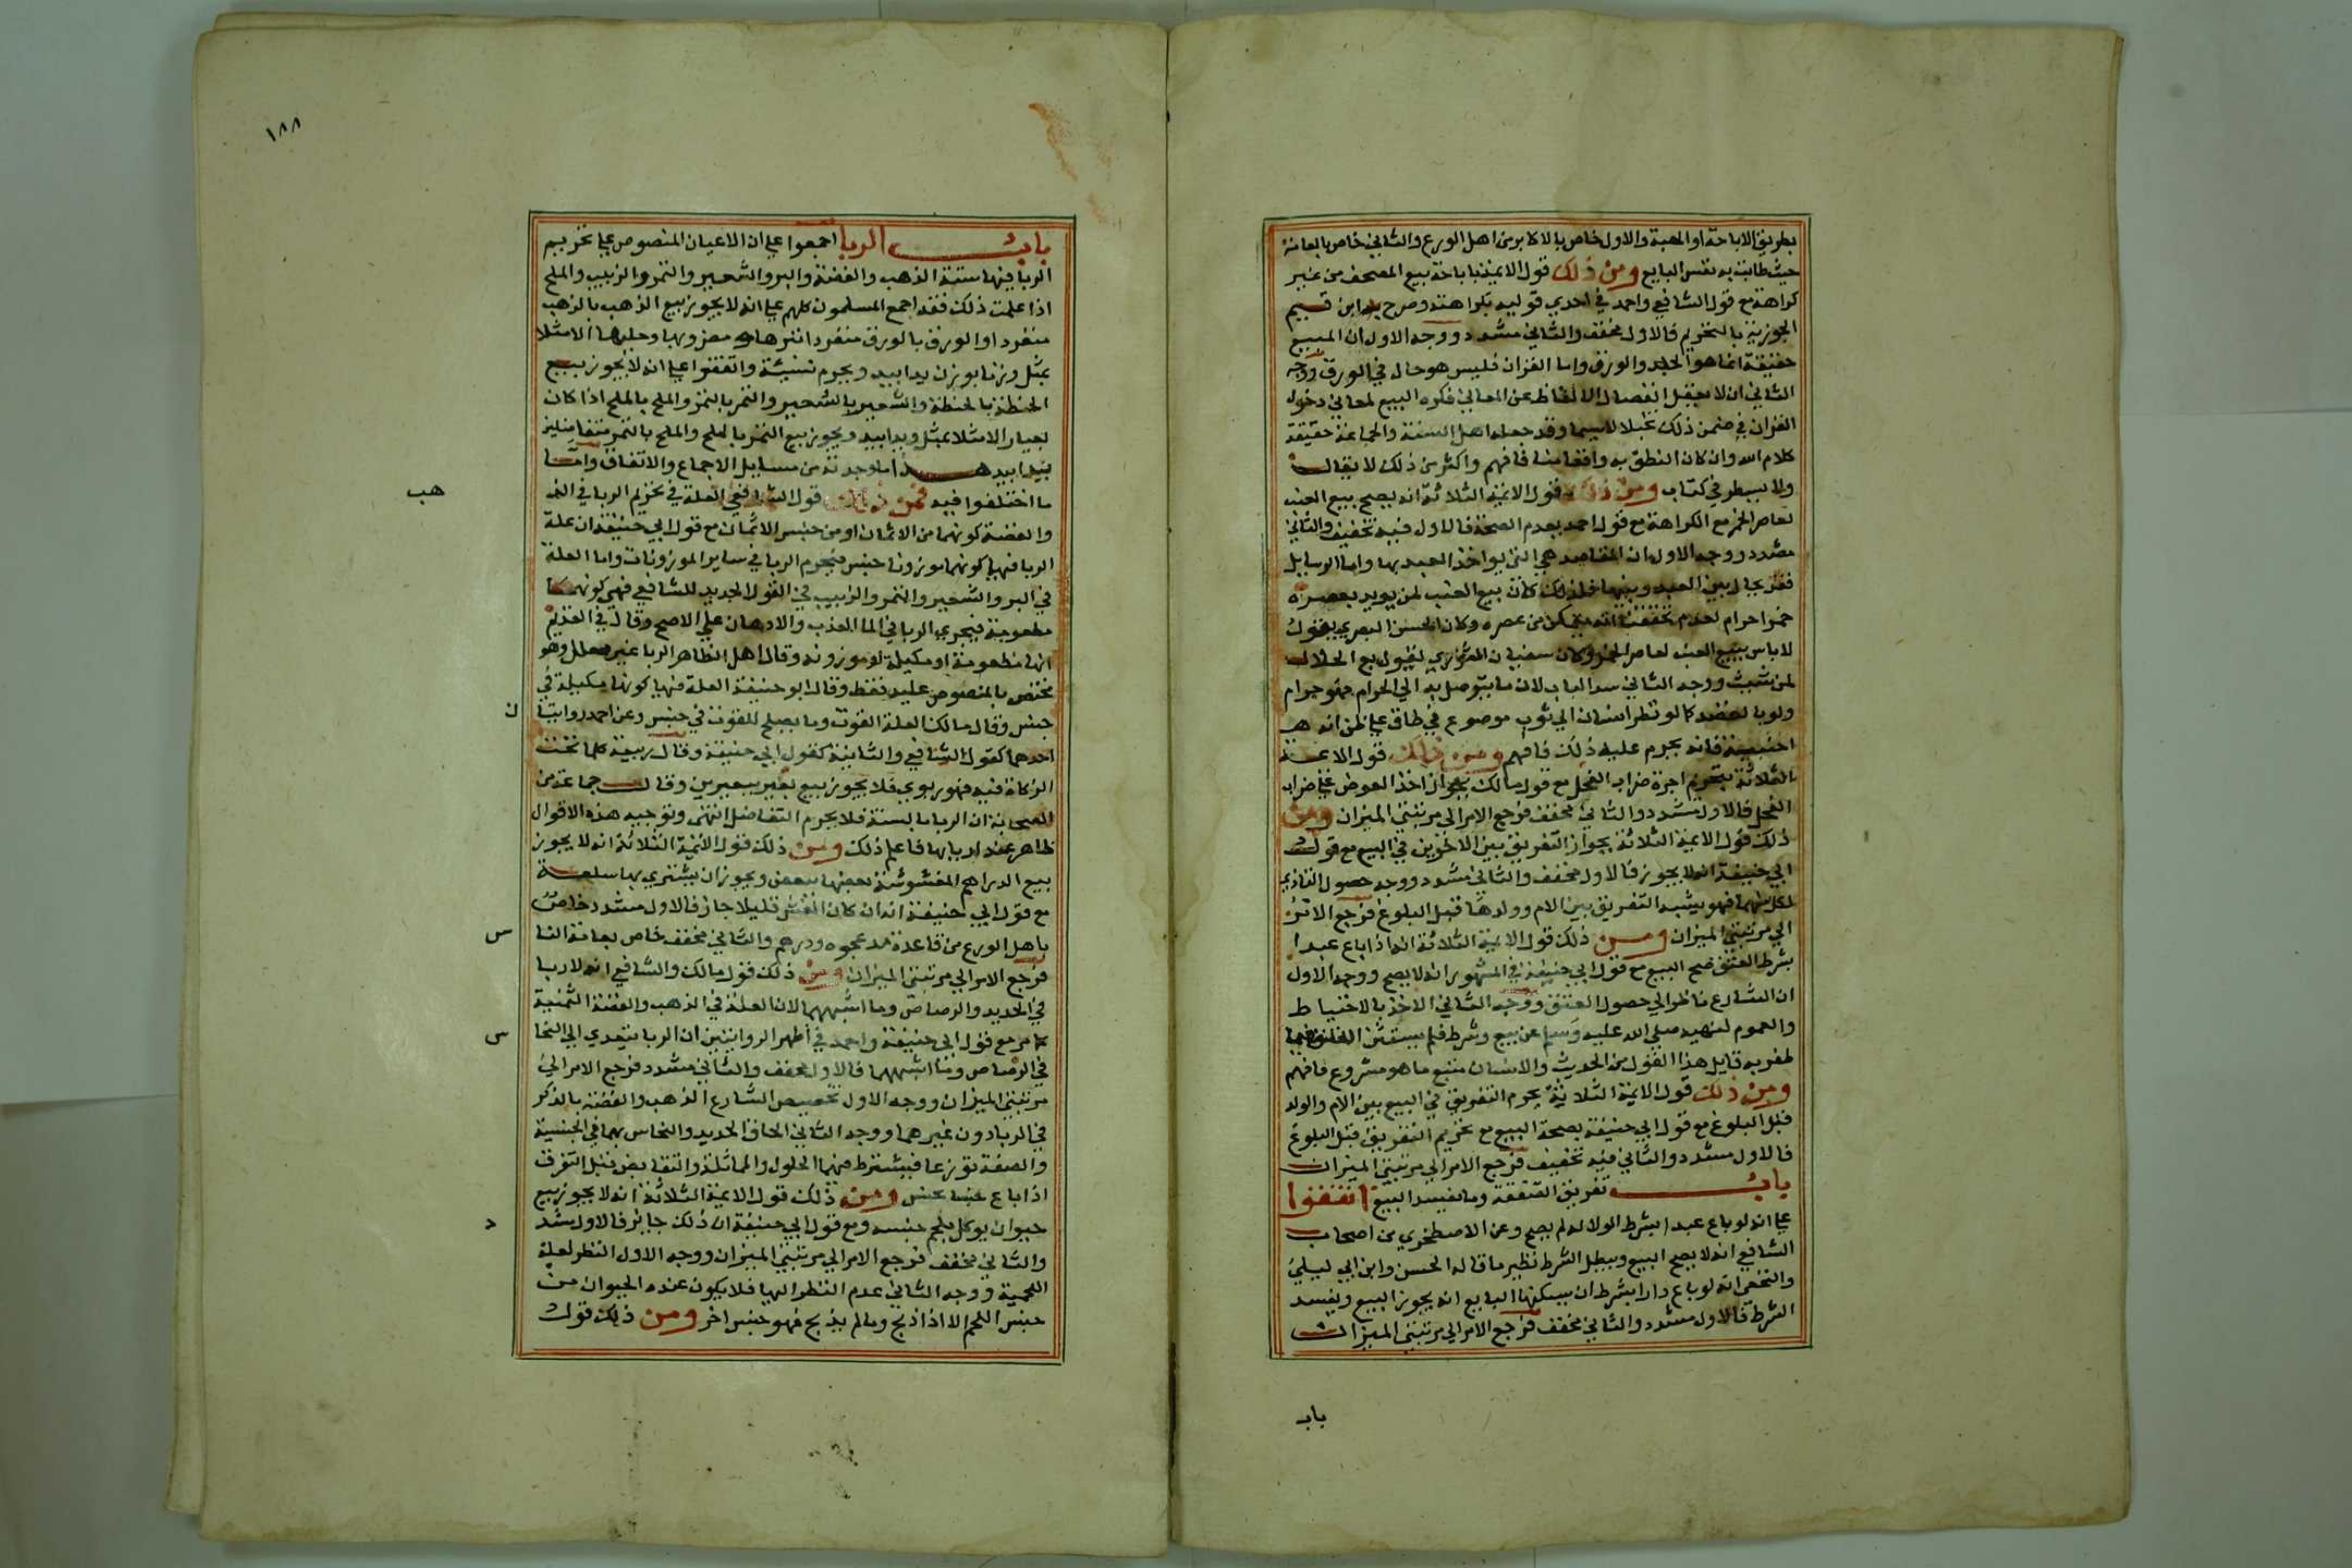 بطريق الاباحة او الهبة والاول خاص بالاكابر من اهل الورع والثاني خاص بالعامة
حيث طابت به نفس البايع ومن ذلك قول الايمة باباحة بيع المصحف من غير
كراهة مع قول الشافعي واحمد في احدي قوليه بكراهته وصرح به ابن قيم
الجوزية بالتحريم فالاول مخفف والثاني مشدد ووجه الاول ان المبيع
حقيقة انما هو الجلد والورق واما القران فليس هو حال في الورق ووجه
الثاني ان لا يعقل انفصال الالفاظ عن المعاني فكره البيع لمعاني دخول
القران في ضمن ذلك لاسيما وقد جعله اهل السنة والجماعة حقيقة
كلام الله وان كان النطق به واقعا منا فافهم واكثر من ذلك لا يقال
ولا يسطر في كتاب ومن ذلك قول الايمة الثلاثة انه يصح بيع العنب
لعاصر الخمر مع الكراهة مع قول احمد بعدم الصحة فالاول فيه تخفيف والثاني
مشدد ووجه الاول ان المقاصد هي التي يواخذ العبد بها واما الوسايل
فقد يحال بين العبد وبينها فلذلك كان بيع العنب لمن يريد يعصره
خمرا حرام لعدم تحققنا انه يتمكن من عصره وكان الحسن البصري يقول
لا باس ببيع العنب لعاصر الخمر وكان سفيان الثوري يقول بع الحلال
لمن شيت ووجه الثاني سد الباب لان ما يتوصل به الي الحرام فهو حرام
ولو بالقصد كما لو نظر انسان الي ثوب موضوع في طاق علي ظن انه
اجنبية فانه يحرم عليه ذلك فافهم ومن ذلك قول الايمة
الثلاثة بتحريم اجرة ضراب الفحل مع قول مالك بجواز اخذ العوض علي ضراب
الفحل فالاول مشدد والثاني مخفف فرجع الامر الي مرتبتي الميزان ومن
ذلك قول الايمة الثلاثة بجواز التفريق بين الاخوين في البيع مع قول
ابي حنيفة انه لا يجوز فالاول مخفف والثاني مشدد ووجهه حصول التاذي
لكل منهما فهو يشبه التفريق بين الام وولدها قبل البلوغ فرجع الامر
الي مرتبتي الميزان ومن ذلك قول الايمة الثلاثة انه اذا باع عبدا
بشرط العتق صح البيع مع قول ابي حنيفة في المشهور انه لا يصح ووجه الاول
ان الشارع ناظر الي حصول العتق ووجه الثاني الاخذ بالاحتياط
والعموم لنهيه صلي الله عليه وسلم عن بيع وشرط فلم يستثن
ظفر به قايل هذا القول من الحديث والانسان متبع ما هو مشروع فافهم
ومن ذلك قول الايمة الثلاثة يحرم التفريق في البيع بين الام والولد
قبل البلوغ مع قول ابي حنيفة بصحة البيع مع تحريم التفريق قبل البلوغ
فالاول مشدد والثاني فيه تخفيف فرجع الامر الي مرتبتي الميزان
باب تفريق الصفقة وما يفسد البيع اتفقوا
علي انه لو باع عبدا بشرط الولا له لم يصح وعن الاصطخري من اصحاب
الشافعي انه لا يصح البيع ويبطل الشرط نظير ما قاله الحسن وابن ابي ليلي
والنخعي انه لو باع دارا بشرط ان يسكنها البايع انه يجوز البيع ويفسد
الشرط فالاول مشدد والثاني مخفف فرجع الامر الي مرتبتي الميزان
باب
١٨٨
باب الربا اجمعوا علي ان الاعيان المنصوص علي تحريم
الربا فيها ستة الذهب والفضة والبر والشعير والتمر والزبيب والملح
اذا علمت ذلك فقد اجمع المسلمون كلهم علي انه لا يجوز بيع الذهب بالذهب
منفردا والورق بالورق منفردا تبرها ومضروبها وحليها الا مثلا
بمثل وزنا بوزن يدا بيد ويحرم نسيئة واتفقوا علي انه لا يجوز بيع
الحنطة بالحنطة والشعير بالشعير والتمر بالتمر والملح بالملح اذا كان
بمعيار الا مثلا بمثل ويدا بيد ويجوز بيع التمر بالملح والملح بالتمر متفاضلين
يدا بيد هذا ما وجدته من مسايل الاجماع والاتفاق واما
ما اختلفوا فيه فمن ذلك قول الشافعي العلة في تحريم الربا في الذهب
والفضة كونهما من الاثمان او من جنس الاثمان مع قول ابي حنيفة ان علة
الربا فيها كونهما موزونا جنس فيحرم الربا في ساير الموزونات واما العلة
في البر والشعير والتمر والزبيب في القول الجديد للشافعي فهي كونها
مطعومة فيجري الربا في الما العذب والادهان علي الاصح وقال في القديم
انها مطعومة او مكيلة او موزونة وقال اهل الظاهر الربا غير معلل وهو
مختص بالمنصوص عليه فقط وقال ابو حنيفة العلة فيها كونها مكيلة في
جنس وقال مالك العلة القوت وما يصلح للقوت في جنس وعن احمد روايتان
احدهما كقول الشافعي والثانية كقول ابي حنيفة وقال ربيعة كلما تجب
الزكاة فيه فهو ربوي فلا يجوز بيع بعير ببعيرين وقال جماعة من
الصحابة ان الربا بالنسية فلا يحرم التفاضل انتهي وتوجيه هذه الاقوال
ظاهر عند اربابها فاعلم ذلك ومن ذلك قول الايمة الثلاثة انه لا يجوز
بيع الدراهم المغشوشة بعضها ببعض ويجوز ان يشتري بها سلعة
مع قول ابي حنيفة انه ان كان الغش قليلا جاز فالاول مشدد خاص
باهل الورع من قاعدة مد عجوه ودرهم والثاني مخفف خاص بعامة النا
س
فرجع الامر الي مرتبتي الميزان ومن ذلك قول مالك والشافعي انه لا ربا
في الحديد والرصاص وما اشبههما لان العلة في الذهب والفضة الثمنية
كما مر مع قول ابي حنيفة واحمد في اظهر الروايتين ان الربا يتعدي الي النحا
س
في الرصاص وما اشبههما فالاول مخفف والثاني مشدد فرجع الامر الي
مرتبتي الميزان ووجه الاول تخصيص الشارع الذهب والفضة بالذكر
في الربا دون غيرهما ووجه الثاني الحاق الحديد والنحاس بهما في الجنسية
والصفة تورعا فيشترط فيهما الحلول والمماثلة والتقابض قبل التفرق
اذا باع جنسا بجنس ومن ذلك قول الايمة الثلاثة انه لا يجوز بيع
حيوان يوكل بلحم جنسه ومع قول ابي حنيفة ان ذلك جايز فالاول مشد
د
والثاني مخفف فرجع الامر الي مرتبتي الميزان ووجه الاول النظر لعلة
اللحمية ووجه الثاني عدم النظر اليها فلا يكون عنده الحيوان من
جنس اللحم الا اذا ذبح وما لم يذبح فهو جنس اخر ومن ذلك قول